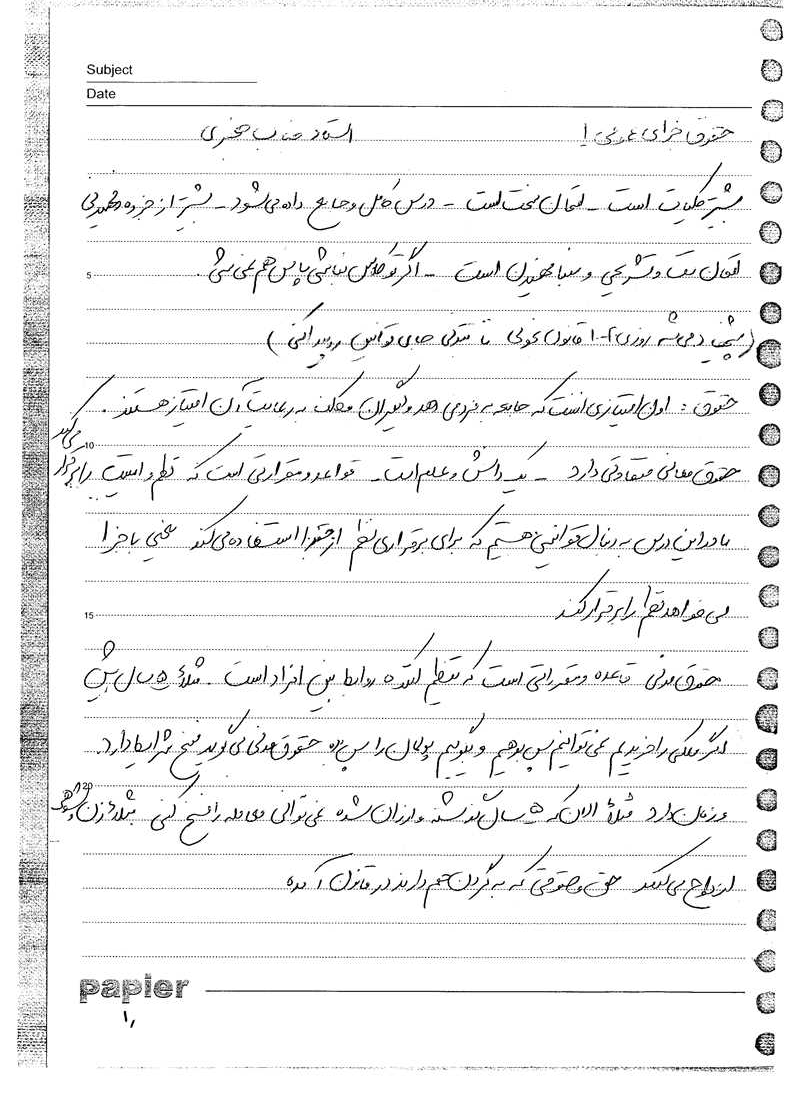 Subject
Date
حقوق جزای عمومی 1 استاد جناب
بیشتر کلیات است - امتحان سخت است - درس کامل و جامع داده می‌شود - بیشتر از جزوه
5
امتحان و تشریحی و است - اگر تو کلاس نباشی پاس هم نمی شی.
( روزی 2-1 قانون بخونی تا بتونی جای قوانین رو پیدا کنی )
حقوق : اول امتیازی است که جامعه به فردی دهد و دیگران مکلف به رعایت آن امتیاز هستند.
10
حقوق معانی متفاوتی دارد - یک دانش و علم است - قواعد و مقرراتی است که نظم و امنیت را برقرار می‌کند
ما در این درس به دنبال قوانینی هستیم که برای برقراری نظم از جزا استفاده می‌کند یعنی با جزا
15
می خواهد نظم را برقرار کند
حقوق مدنی قاعده و مقرراتی است که تنظیم کننده روابط بین افراد است. مثلاً ۵ سال پیش
اگر ملکی را خریدیم نمی توانیم پس بدهیم و بگوییم پولمان را پس بده حقوق مدنی می گوید فسخ شرایط دارد.
20
و زمان دارد مثلاً الان که ۵ سال گذشته و ارزان شده نمی توانی معامله را فسخ کنی مثلاً زن و شوهر
ازدواج می‌کنند حق و حقوقی که به گردن هم دارند در قانون آمده
papier
۱,